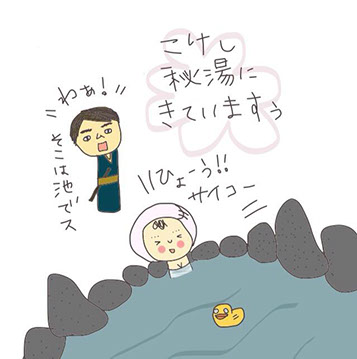 こけし
秘湯に
きていますぅ
わぁ!
そこは池でス
ひょーう!!
サイコー